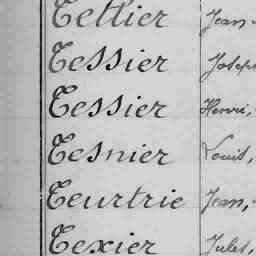 Tellier Jean-
Tessier Joseph
Tessier Henri,
Tesnier Louis,
Teurtrie Jean,-
Texier Jules,